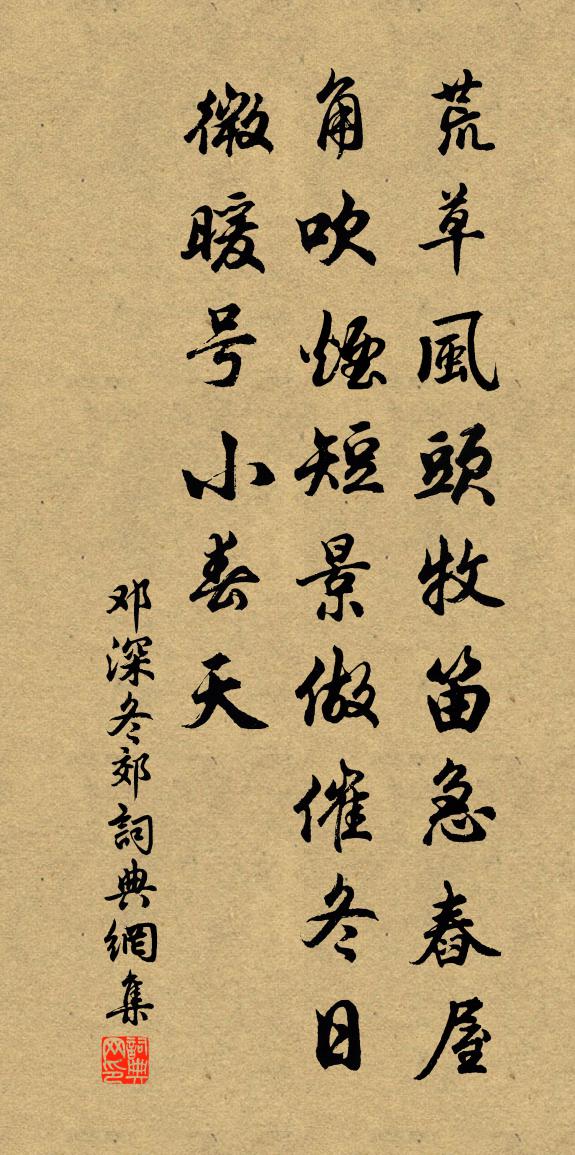 荒草風頭牧笛急舂屋
角吹煙短景做催冬日
微暖号小春天
邓深冬郊詞典網集
詞典网印